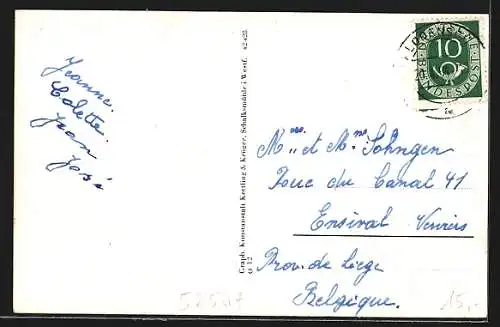 Jeanne.
Colette.
Jean
José
Graph. Kunstanstalt Kersting & Krüger, Schalksmühle i Westf. 42 428
G 12
10
DEUTSCHE BUNDESPOST
Mme et Mr Sohngen
Rue du Canal 41
Ensival Verviers
Prov. de Liège
Belgique.
15,-